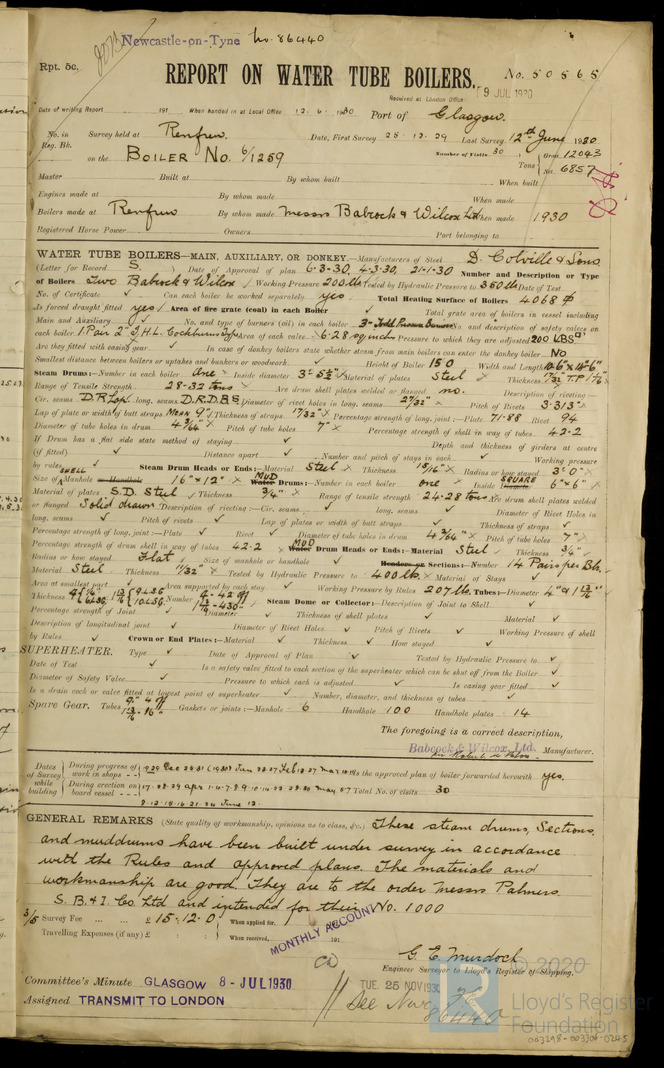 Newcastle-on-Tyne No. 86440
Rpt. 5c.
REPORT ON WATER TUBE BOILERS.
No. 50565
Received at London Office 9 JUL 1930
Date of writing Report 191 When handed in at Local Office 12. 6. 1930 Port of Glasgow.
No. in Reg. Bk. Survey held at Renfrew. Date, First Survey 28-12-29 Last Survey 12th June 1930
Number of Visits 30
on the BOILER No. 6/1259
Tons Gross 12043
Net 6857
Master Built at By whom built When built
Engines made at By whom made When made
Boilers made at Renfrew By whom made Messrs Babcock & Wilcox Ltd When made 1930
Registered Horse Power Owners Port belonging to
WATER TUBE BOILERS—MAIN, AUXILIARY, OR DONKEY.—Manufacturers of Steel D. Colville & Sons
(Letter for Record S.) Date of Approval of plan 6-3-30, 4-3-30, 21-1-30 Number and Description or Type
of Boilers Two Babcock & Wilcox Working Pressure 200 lbs Tested by Hydraulic Pressure to 350 lbs Date of Test
No. of Certificate ✓ Can each boiler be worked separately yes Total Heating Surface of Boilers 4068
Is forced draught fitted yes Area of fire grate (coal) in each Boiler ✓ Total grate area of boilers in vessel including
Main and Auxiliary ✓ No. and type of burners (oil) in each boiler No. and description of safety valves on
each boiler 1 Pair 2" I.H.L. Cockburn Type Area of each valve 6.28 sq inches Pressure to which they are adjusted 200 LBS
Are they fitted with easing gear ✓ In case of donkey boilers state whether steam from main boilers can enter the donkey boiler No
Smallest distance between boilers or uptakes and bunkers or woodwork Height of Boiler 15'0 Width and Length 10'-6" x 14'-6"
Steam Drums:—Number in each boiler One Inside diameter 3'-5½" Material of plates Steel Thickness
Range of Tensile Strength 28-32 tons Are drum shell plates welded or flanged no. Description of riveting:—
Cir. seams D.R. Lap long. seams D.R.D.B.S Diameter of rivet holes in long. seams 27/32" Pitch of Rivets 3.313"
Lap of plate or width of butt straps Mean 9" Thickness of straps 17/32" Percentage strength of long. joint:—Plate 71.88 Rivet 94
Diameter of tube holes in drum 4 3/64" Pitch of tube holes 7" Percentage strength of shell in way of tubes 42.2
If Drum has a flat side state method of staying ✓ Depth and thickness of girders at centre
(if fitted) ✓ Distance apart ✓ Number and pitch of stays in each ✓ Working pressure
by rules ✓ Steam Drum Heads or Ends:—Material Steel Thickness 15/16" Radius or how stayed 3'0"
SHELL MUD SQUARE
Size of Manhole or Handhole 16" x 12" Water Drums:—Number in each boiler one Inside Diameter 6" x 6"
Material of plates S.D. Steel Thickness ¾" Range of tensile strength 24-28 tons Are drum shell plates welded
or flanged Solid drawn Description of riveting:—Cir. seams ✓ long. seams ✓ Diameter of Rivet Holes in
long. seams ✓ Pitch of rivets ✓ Lap of plates or width of butt straps ✓ Thickness of straps ✓
Percentage strength of long. joint:—Plate ✓ Rivet ✓ Diameter of tube holes in drum 4 3/64" Pitch of tube holes 7"
Percentage strength of drum shell in way of tubes 42.2 MUD Water Drum Heads or Ends:—Material Steel Thickness ¾"
Radius or how stayed Flat Size of manhole or handhole ✓ Headers or Sections:—Number 14 Pairs per Blr.
Material Steel Thickness 11/32" Tested by Hydraulic Pressure to 400 lbs. Material of Stays ✓
Area at smallest part ✓ Area supported by each stay ✓ Working Pressure by Rules 207 lbs. Tubes:—Diameter 4" & 1 13/16"
Thickness Number Steam Dome or Collector:—Description of Joint to Shell ✓
Percentage strength of Joint Diameter ✓ Thickness of shell plates ✓ Material ✓
Description of longitudinal joint ✓ Diameter of Rivet Holes ✓ Pitch of Rivets ✓ Working Pressure of shell
by Rules ✓ Crown or End Plates:—Material ✓ Thickness ✓ How stayed ✓
SUPERHEATER. Type ✓ Date of Approval of Plan ✓ Tested by Hydraulic Pressure to ✓
Date of Test ✓ Is a safety valve fitted to each section of the superheater which can be shut off from the Boiler ✓
Diameter of Safety Valve ✓ Pressure to which each is adjusted ✓ Is easing gear fitted ✓
Is a drain cock or valve fitted at lowest point of superheater ✓ Number, diameter, and thickness of tubes ✓
Spare Gear. Tubes Gaskets or joints:—Manhole 6 Handhole 100 Handhole plates 14
The foregoing is a correct description,
Babcock & Wilcox, Ltd. Manufacturer.
Dates of Survey while building During progress of work in shops Is the approved plan of boiler forwarded herewith yes.
During erection on board vessel Total No. of visits 30
GENERAL REMARKS (State quality of workmanship, opinions as to class, &c.) These steam drums, Sections,
and muddrums have been built under survey in accordance
with the Rules and approved plans. The materials and
workmanship are good. They are to the order Messrs Palmers
S. B. & I. Co. Ltd and intended for their No. 1000
3/5 Survey Fee £ 15 : 12 . 0 When applied for,
Travelling Expenses (if any) £ When received, 191
MONTHLY ACCOUNT
G. E. Murdoch
Engineer Surveyor to Lloyd's Register of Shipping.
Committee's Minute GLASGOW 8 - JUL 1930
TUE. 25 NOV 1930
Assigned TRANSMIT TO LONDON
86440
© 2020
Lloyd's Register
Foundation
003298-003304-0245